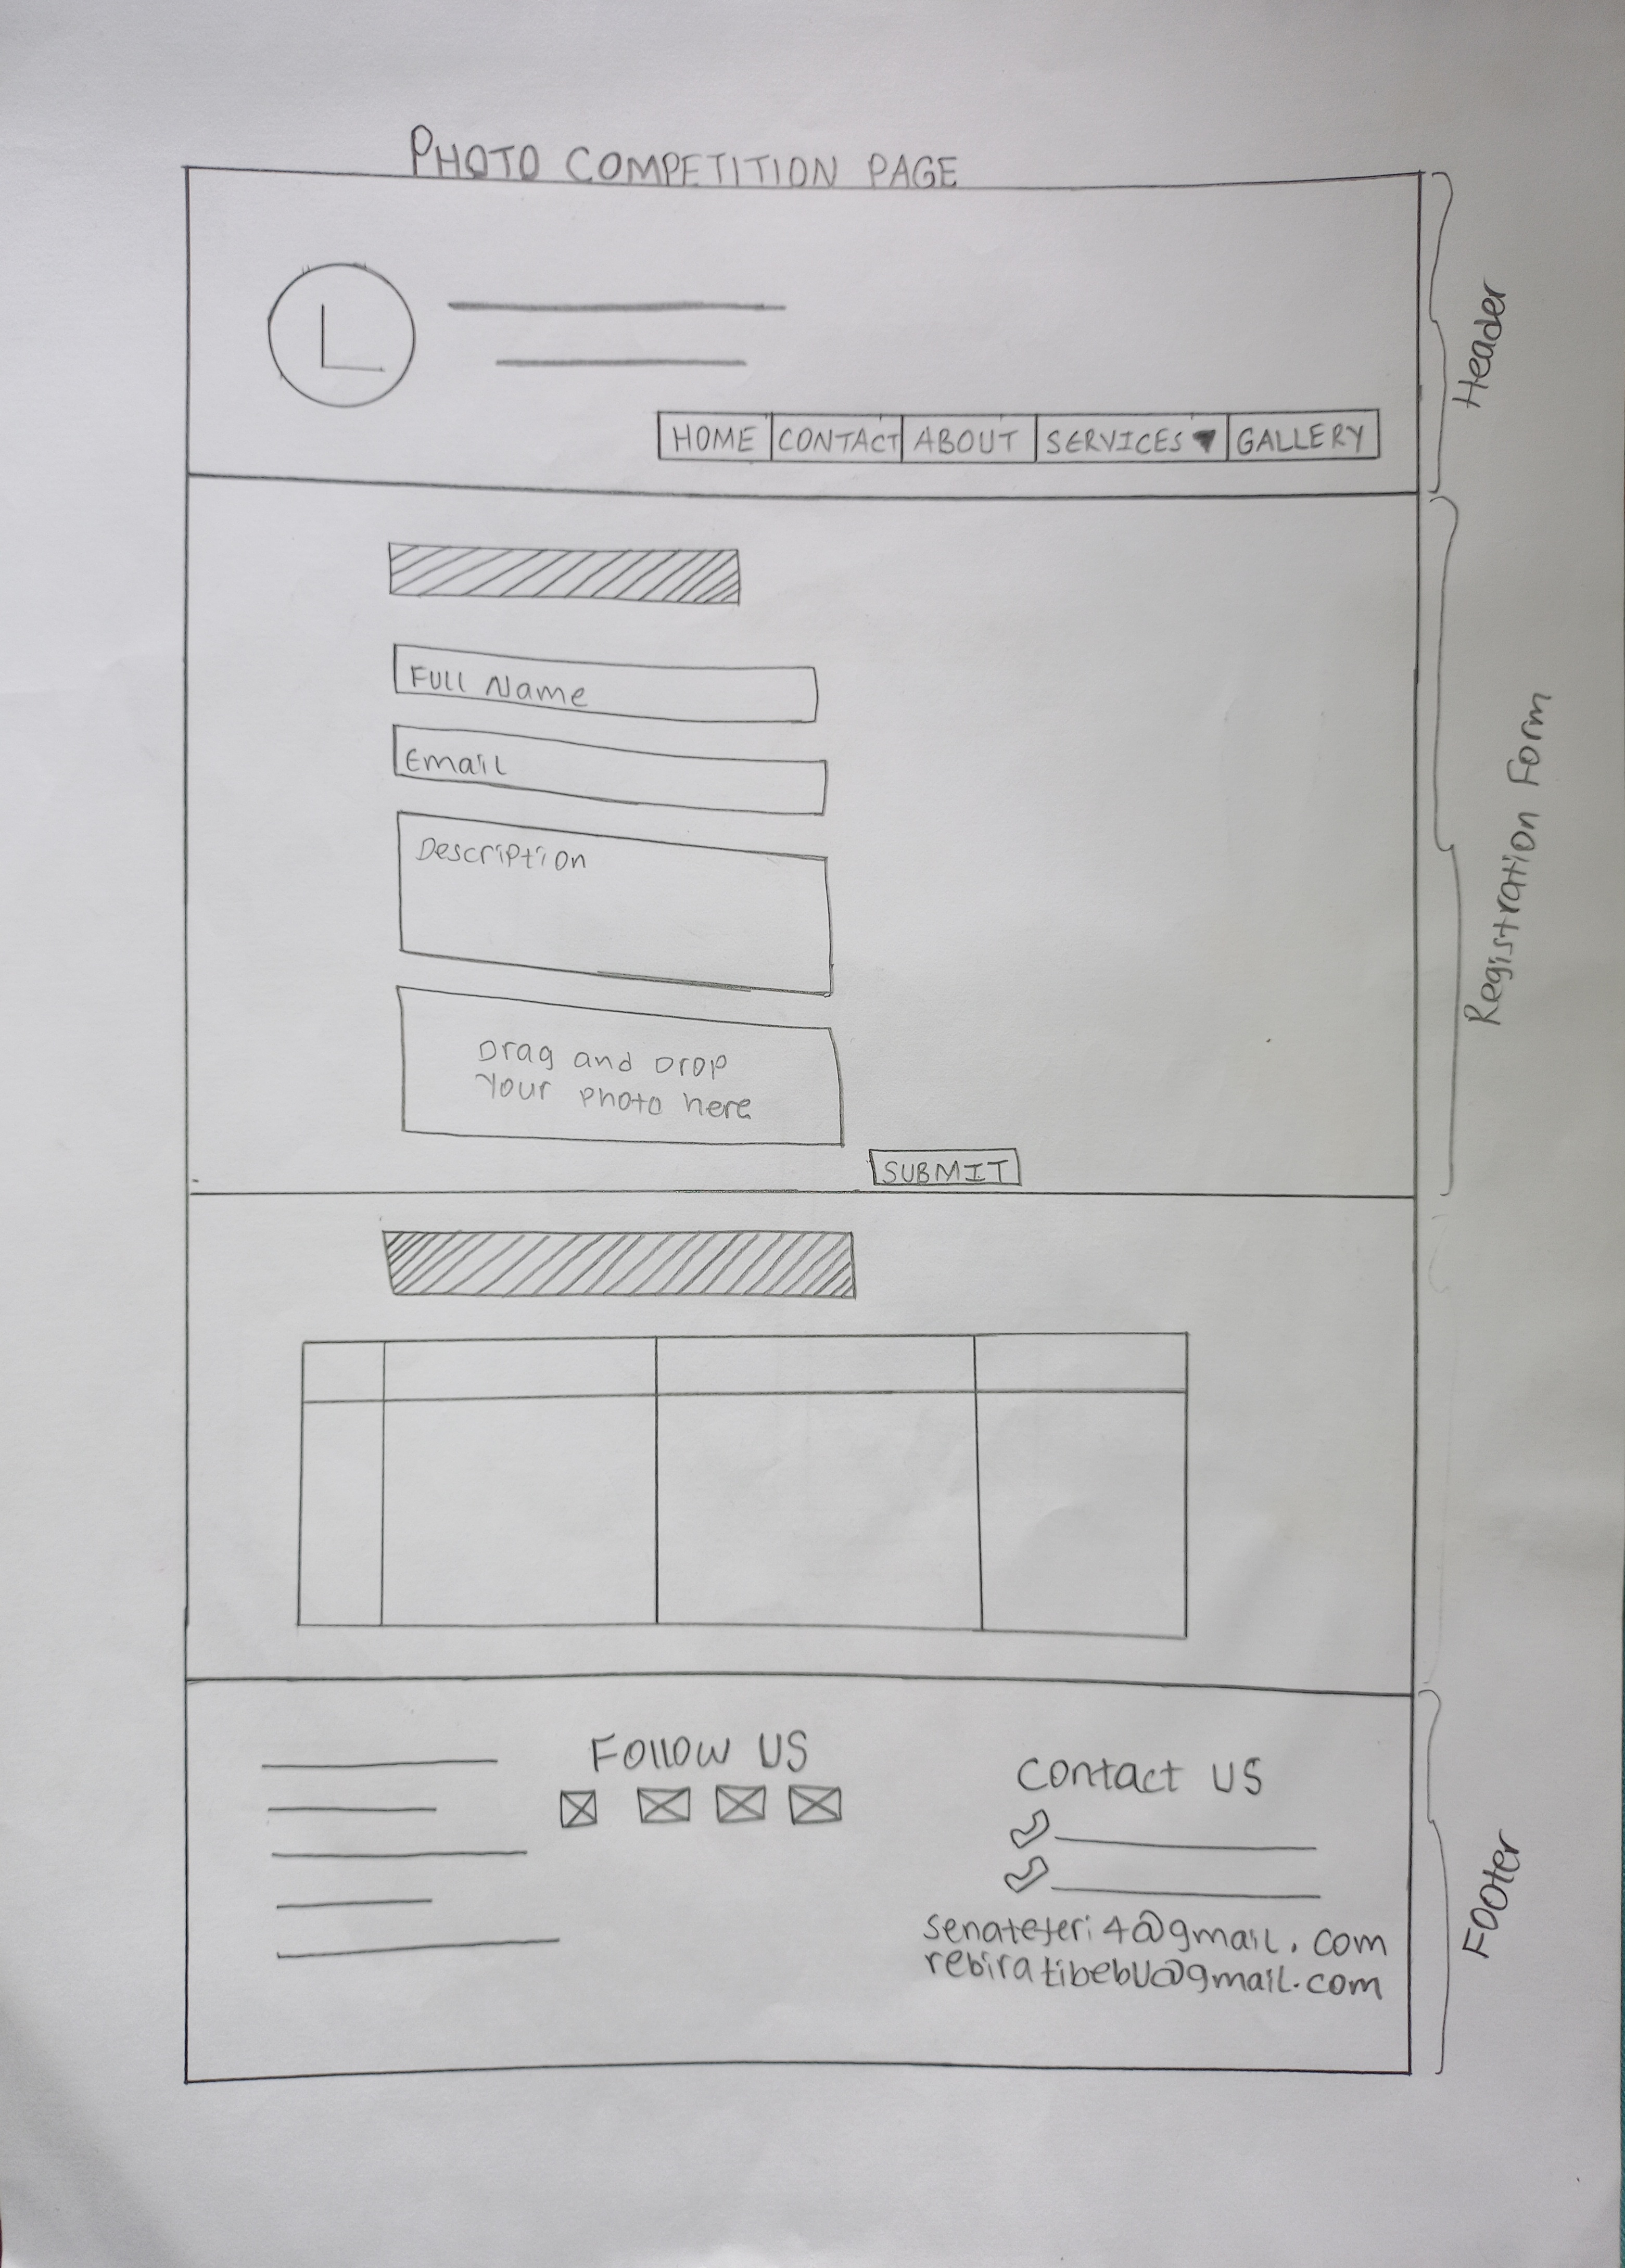 PHOTO COMPETITION PAGE
L
HOME CONTACT ABOUT SERVICES GALLERY
Header
Full Name
Email
Description
Drag and Drop
Your photo here
SUBMIT
Registration Form
Follow US
Contact US
senateferi4@gmail.com
rebiratibebu@gmail.com
Footer